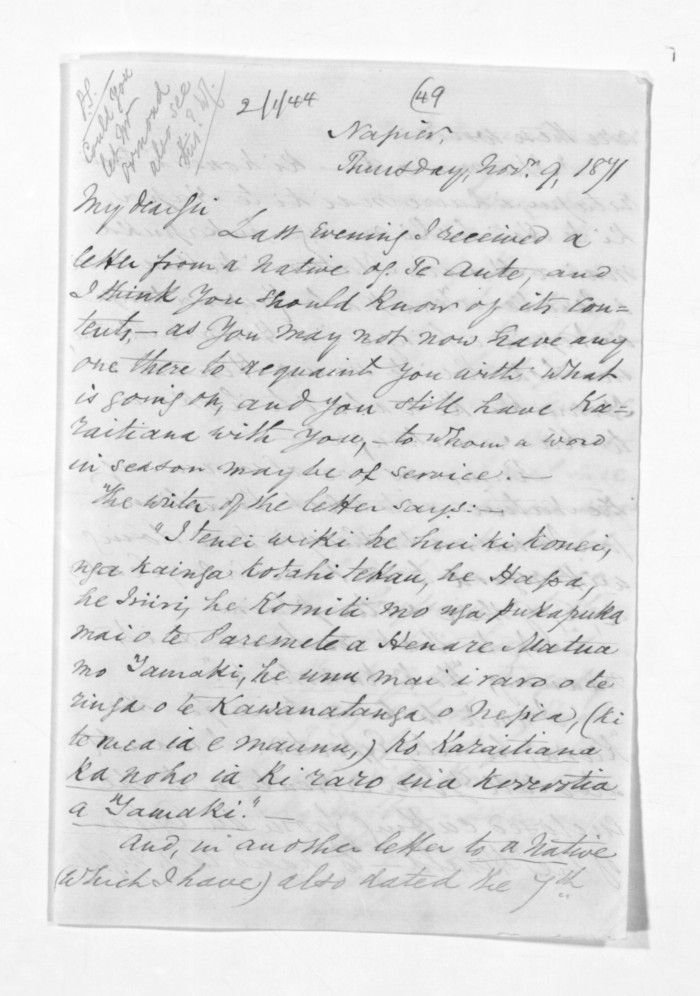 PS.
Could you
let Mr
Ormond
also see
this? W.
2/1/44
(49
Napier,
Thursday, Novr. 9, 1871
My dear Sir
Last Evening I received a
letter from a Native of Te Aute, and
I think You should Know of its con-
tents, – as You may not now have any
one there to acquaint You with what
is going on, and you still have Ka-
raitiana with You, – to whom a word
in season may be of service. –
The writer of the letter says: –
"I tenei wiki he hui ki konei,
nga kainga kotahi tekau, he Hapa,
he Iriiri, he Komiti mo nga pukapuka
mai o te Paremete a Henare Matua
mo Tamaki, he unu mai i raro o te
ringa o te Kawanatanga o Nepia, (ki
te mea ia e maunu,) Ko Karaitiana
Ka noho ia ki raro ina korerotia
a Tamaki." –
And, in another letter to a Native
(which I have) also dated the 7th